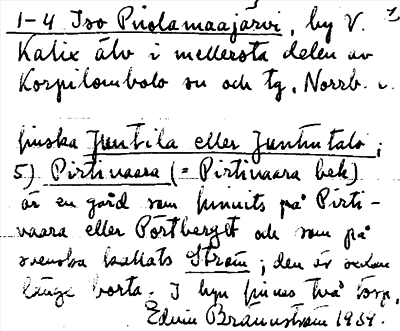 1-4 Iso Puolamaajärvi, by V.
Kalix älv i mellersta delen av
Korpilombolo sn och tg, Norrb. l.
finska Juntila eller Juntintalo;
5) Pirtivaara (= Pirtivaara bek)
är en gård som funnits på Pirti-
vaara eller Pörtberget och som på
svenska kallats Ström; den är sedan
länge borta. I byn finnes två torp.
Edvin Brännström 1934.